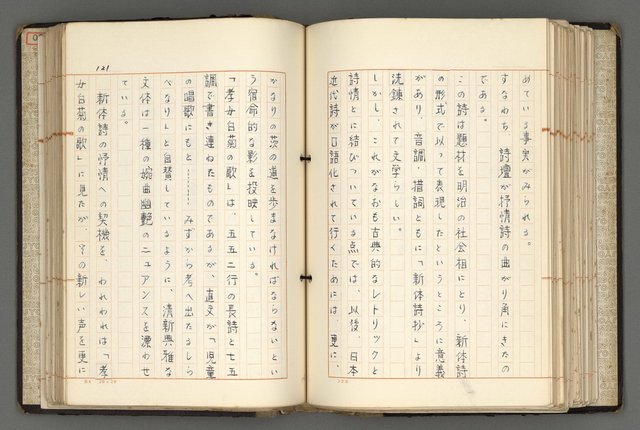 めている事実がみられる。
すなわち、詩壇が抒情詩の曲がり角にきたの
である。
この詩は題材を明治の社会相にとり、新体詩
の形式で以って表現したというところに意義
があり、音調・措詞ともに「新体詩抄」より
洗錬されて文学らしい。
しかし、これがなおも古典的なレトリックと
詩情とに結びついている点では、以後、日本
近代詩が口語化されて行くためには、更に、
121
かなりの茨の道を歩まなければならないとい
う宿命的な影を投映している。
「孝女白菊の歌」は、五五二行の長詩と七五
調で書き連ねたものであるが、直文が「児童
の唱歌にもと……みずから考へ出たるしら
べなり」と自賛しているように、清新典雅な
文体は一種の婉曲幽艶のニュアンスを漂わせ
ている。
新体詩の抒情への契機を、われわれは「孝
女白菊の歌」に見たが、その新しい声を更に